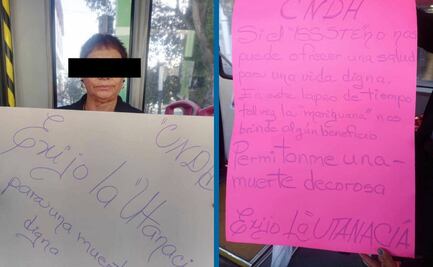 "CNDH
Exijo la "Utanaci
para una muert
digna
CNDH
Si el "ISSSTE" no nos
puede ofrecer una salud
para una vida digna.
En este lapso de tiempo
tal vez la "mariguana" nos
brinde algún beneficio
Permitanme una-
muerte decorosa
Exijo la "UTANACIÁ